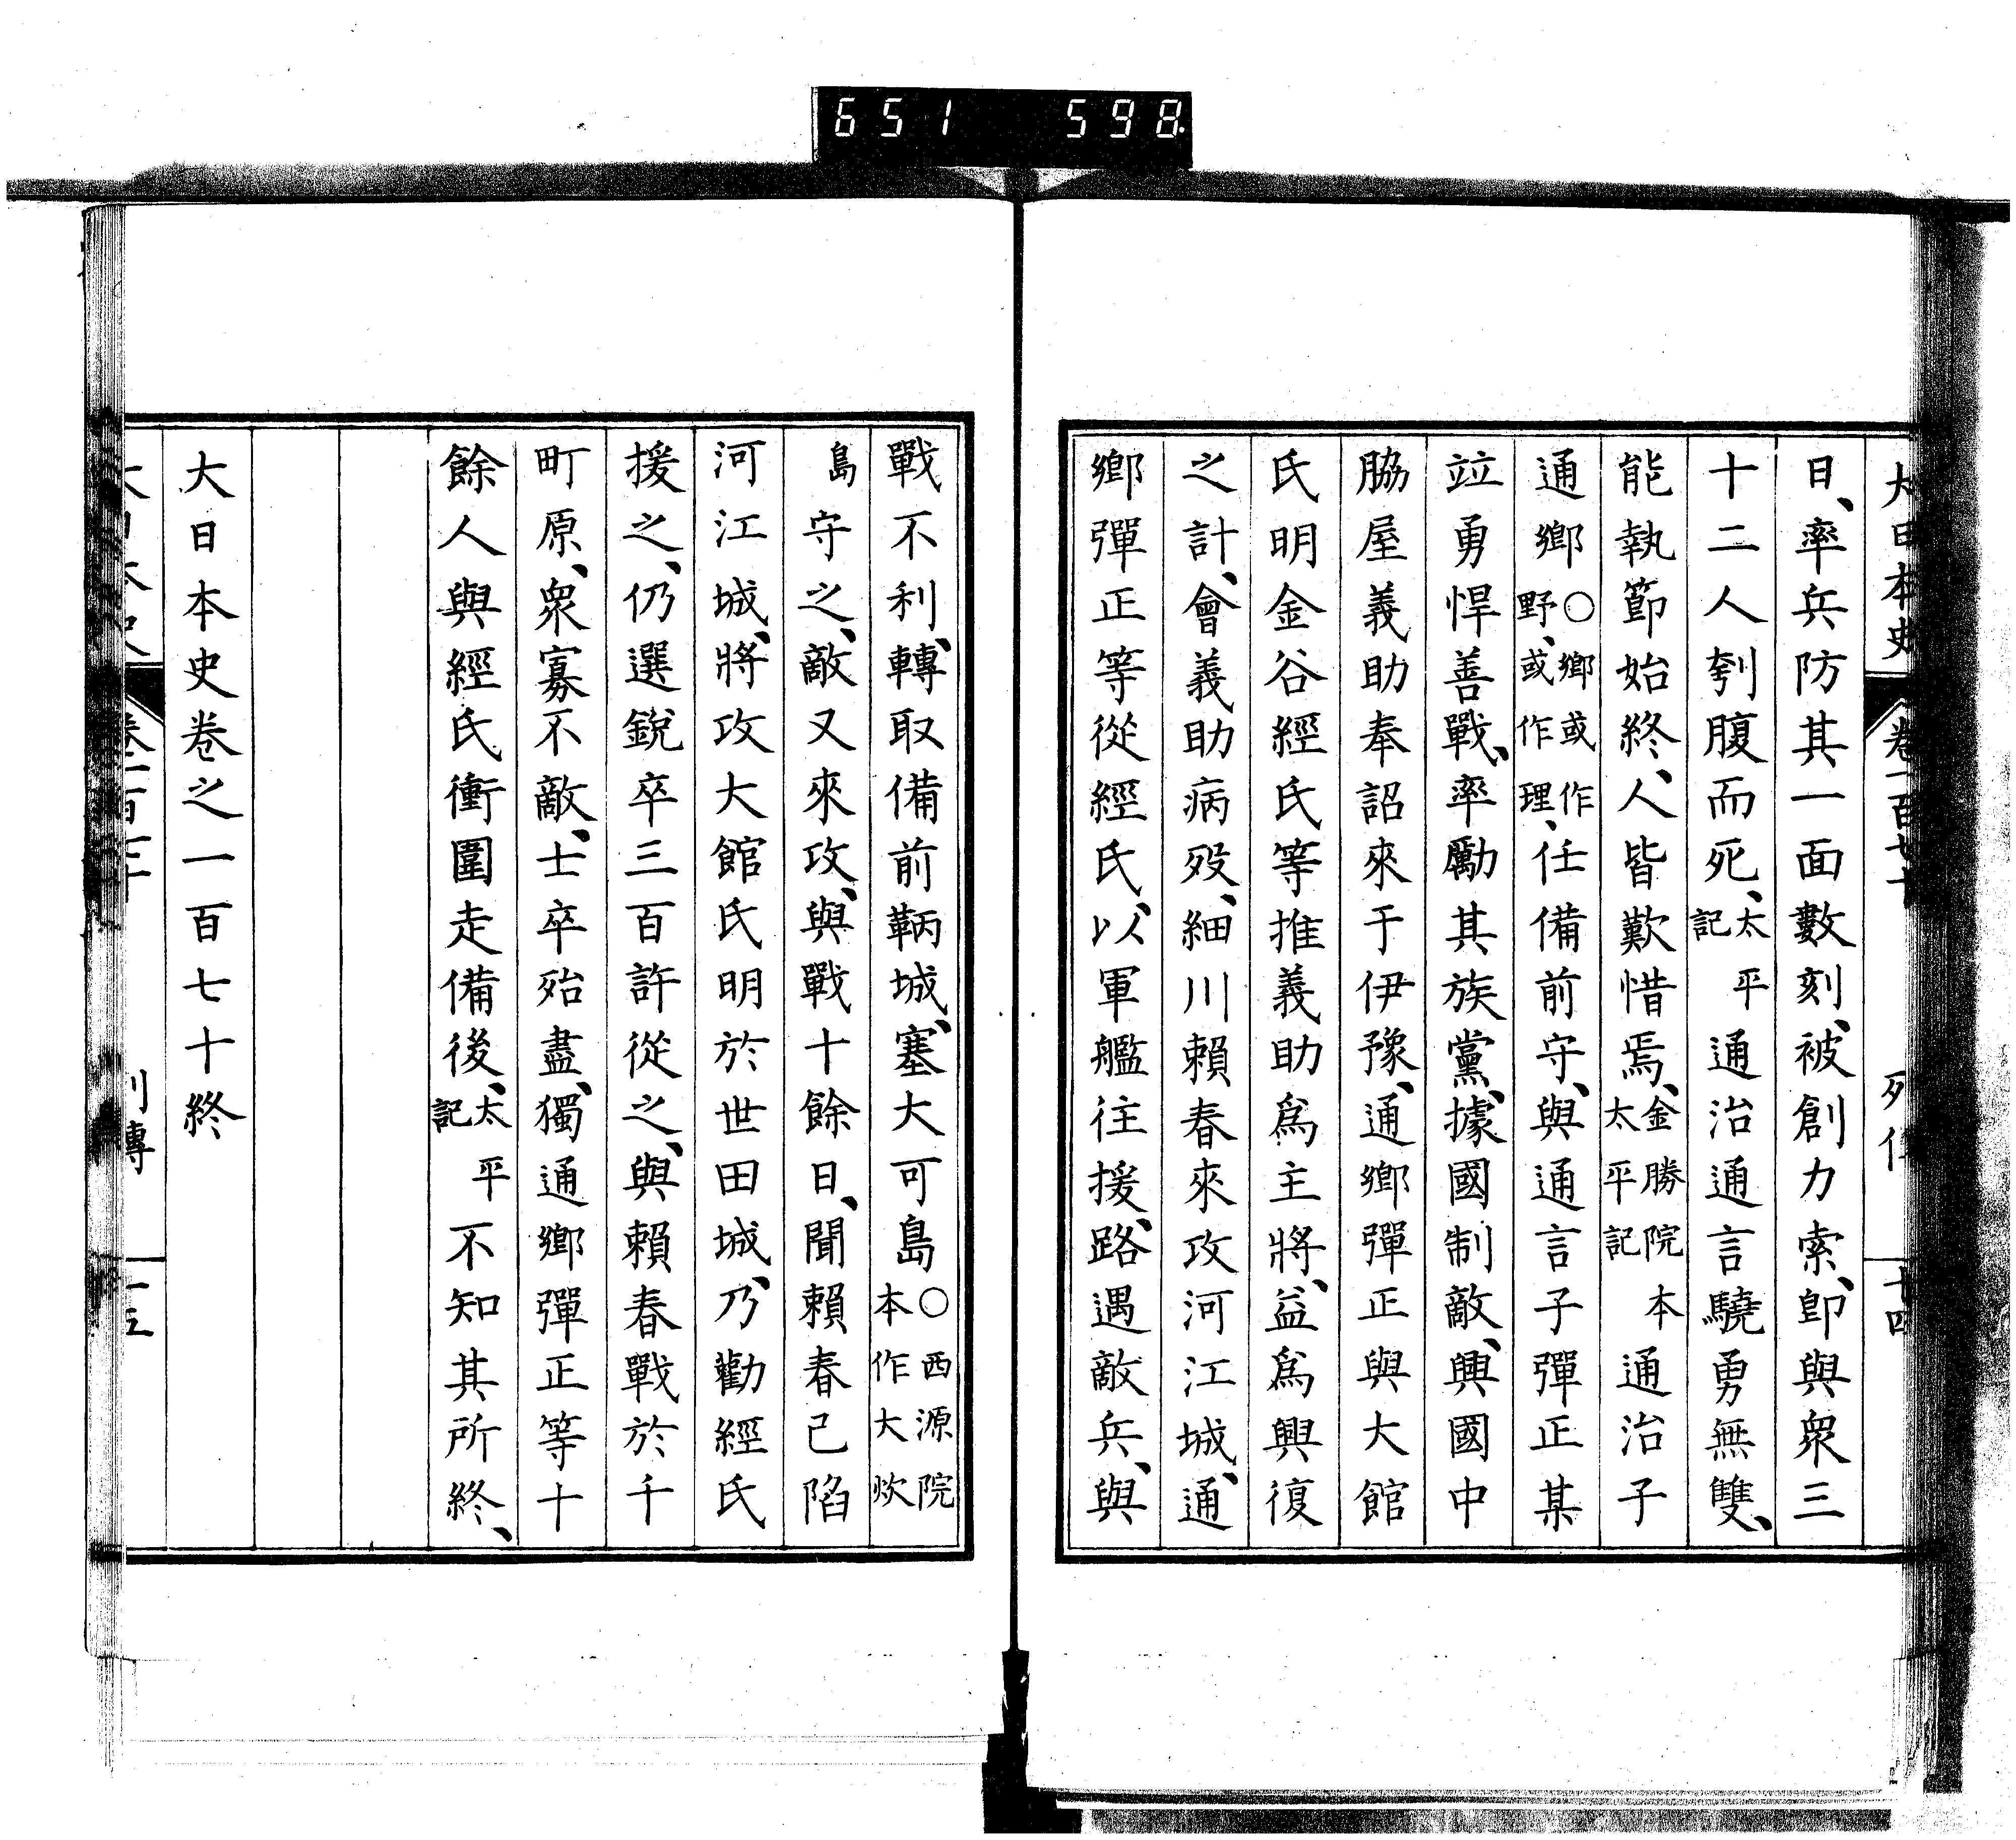 651 598
大日本史 卷一百七十 列傳 十四
日、率兵防其一面數刻、被創力索、卽與衆三
十二人刳腹而死、太平記通治通言驍勇無雙、
能執節始終、人皆歎惜焉、金勝院本太平記通治子
通鄕○鄕或作野、或作理、任備前守、與通言子彈正某
竝勇悍善戰、率勵其族黨、據國制敵、與國中
脇屋義助奉詔來于伊豫、通鄕彈正與大館
氏明金谷經氏等推義助爲主將、益爲興復
之計、會義助病歿、細川賴春來攻河江城、通
鄕彈正等從經氏、以軍艦往援、路遇敵兵、與
戰不利、轉取備前鞆城、塞大可島○西源院本作大炊
島守之、敵又來攻、與戰十餘日、聞賴春已陷
河江城、將攻大館氏明於世田城、乃勸經氏
援之、仍選銳卒三百許從之、與賴春戰於千
町原、衆寡不敵、士卒殆盡、獨通鄕彈正等十
餘人與經氏衝圍走備後、太平記不知其所終、
大日本史卷之一百七十終